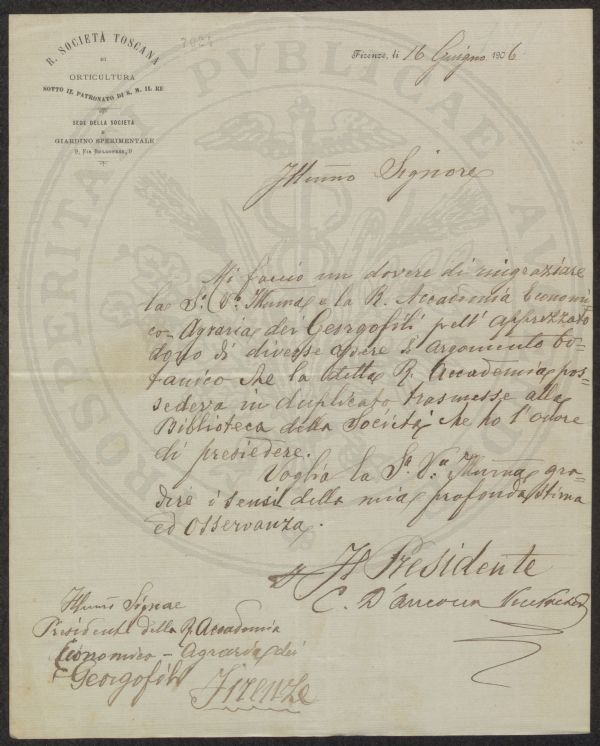 R. SOCIETÀ TOSCANA
DI
ORTICULTURA
SOTTO IL PATRONATO DI S. M. IL RE
SEDE DELLA SOCIETÀ
E
GIARDINO SPERIMENTALE
9, Via Bolognese, 9
Firenze, li 16 Giugno 1906
Illmo Signore
Mi faccio un dovere di ringraziare
la S. V. Illma e la R. Accademia Economi
co-Agraria dei Georgofili pell'apprezzato
dono di diverse opere d'argomento bo-
tanico che la detta R. Accademia pos-
sedeva in duplicato trasmesse alla
Biblioteca della Società che ho l'onore
di presiedere.
Voglia la Sa. Va. Illma gra-
dire i sensi della mia profonda stima
ed osservanza.
Il Presidente
C. D'Ancona
Illmo Signor
Presidente della R. Accademia
Economico-Agraria dei
Georgofili
Firenze
PROSPERITATI PUBLICAE AU